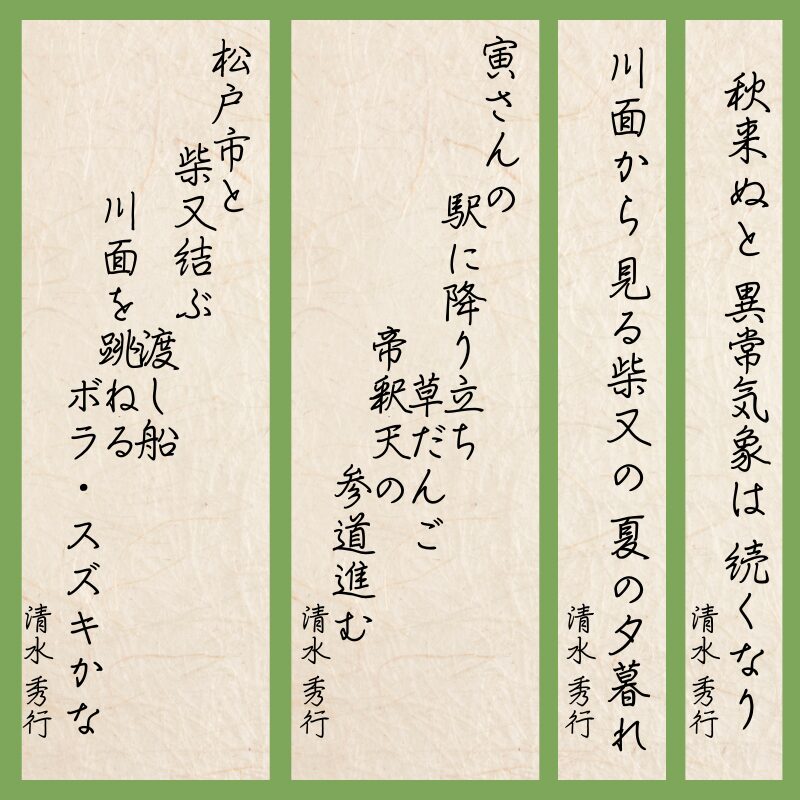 秋来ぬと 異常気象は 続くなり
清水 秀行
川面から 見る柴又の 夏の夕暮れ
清水 秀行
寅さんの
駅に降り立ち
草だんご
帝釈天の
参道進む
清水 秀行
松戸市と
柴又結ぶ
渡し船
川面を跳ねる
ボラ・スズキかな
清水 秀行